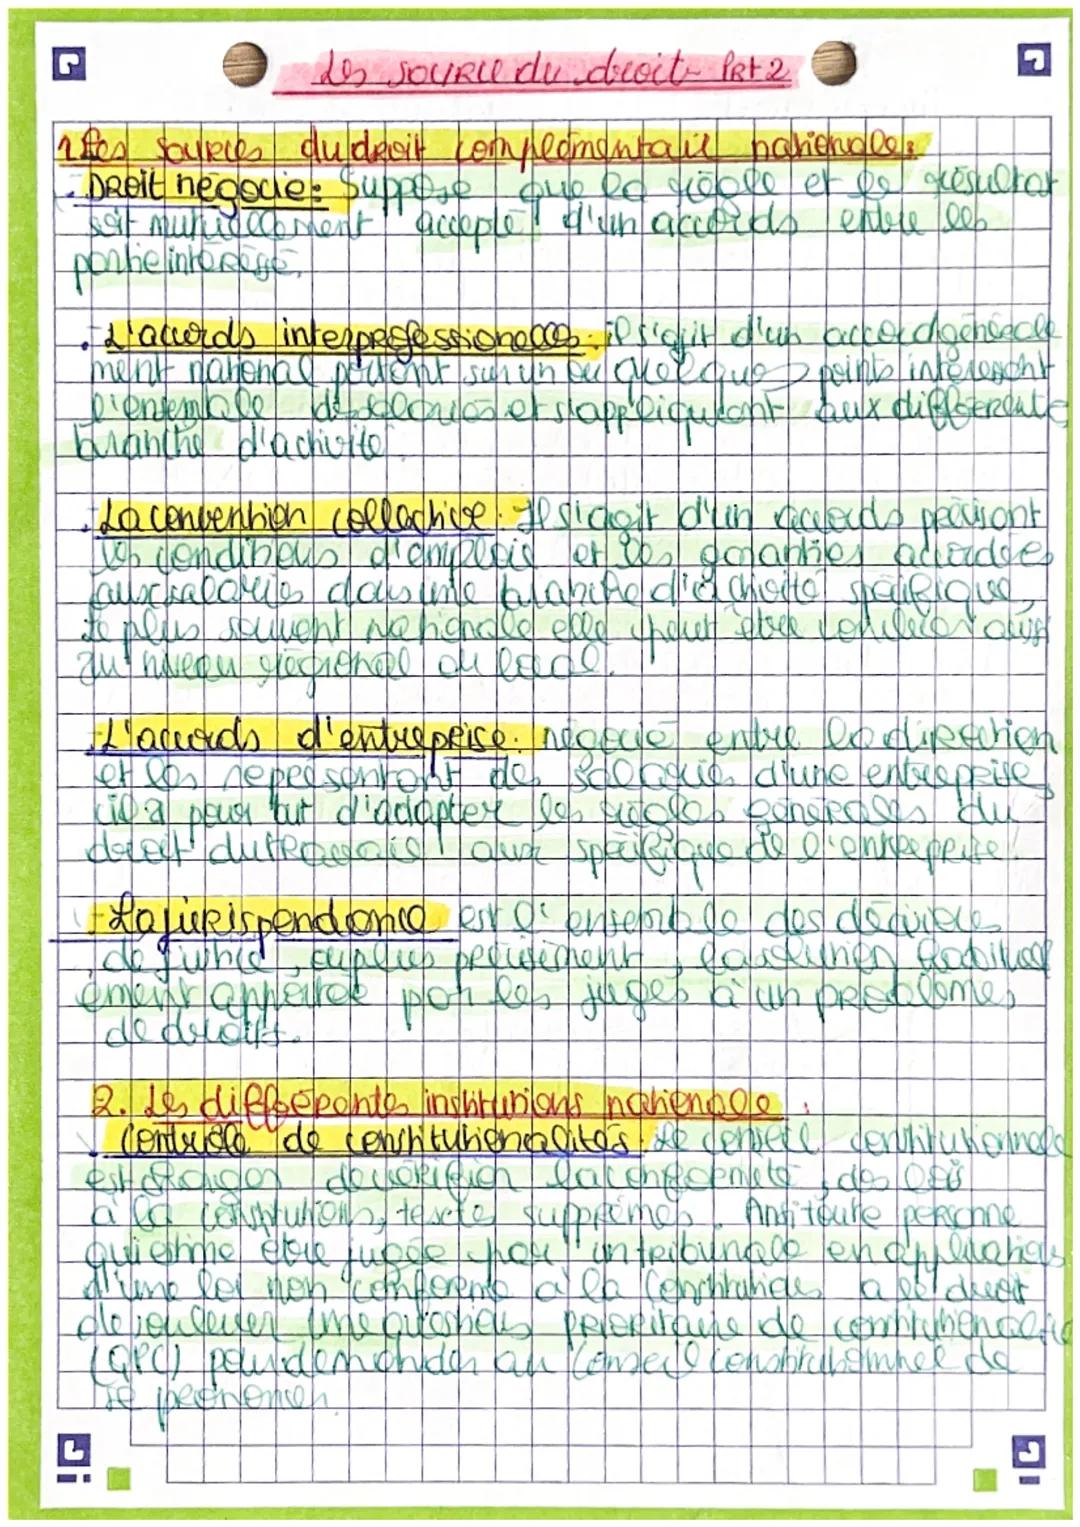 Les source du droit Prt 2
1 Les sources du droit complémentaie nationale:
- Droit négocie: Suppose que la règle et le résultat
soit mutuellement accepté d'un accords entre les
partie intéressé.
. L'accords interprofessionelle: il s'agit d'un accord générale
ment national portent sur un ou quelques points intéressent
l'ensemble des salariés et s'appliqutant aux différente
branche d'activité.
. La convention collective. Il s'agit d'un accords précisont
les conditions d'emplois et les garanties accordées
aux salariés dans une branche d'activité spécifique,
le plus souvent nationale elle peut être conclue aussi
au niveau régional ou local.
. L'accords d'entreprise. négocié entre la direction
et les représentant des salariés d'une entreprise,
il a pour but d'adapter les règles générales du
droit du travail aux spécifique de l'entreprise.
- La jurispendance est l'ensemble des décisions
de justice, au plus précisément, la solution habituel
ement apportée par les juges à un problèmes
de droits.
2. Les différentes institutions nationale:
. Contrôle de constitutionalités. Le conseil constitutionnale
est charger de vérifier la conformité, des lois
à la constitutions, textes supprêmes. Ansi toute personne
qui estime être jugée par un tribunale en applications
d'une loi non conforme à la Constitutions a le droit
de soulever une questions prioritaire de constitutionalité
(QPC) pour demander au Conseil constitutionnel de
se prononcer.